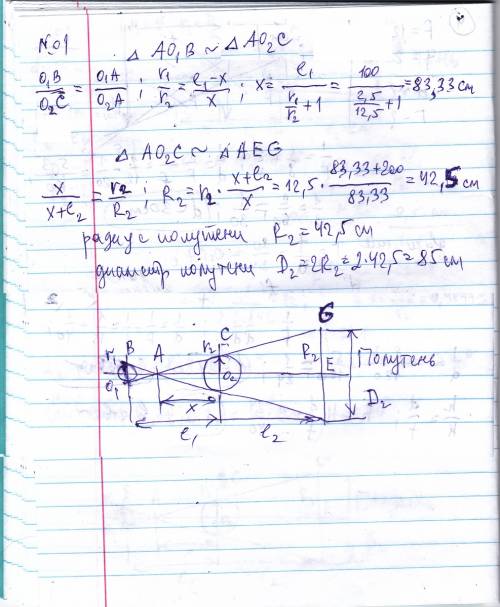 №01
Δ AO₁B ∼ Δ AO₂C
O₁B/O₂C = O₁A/O₂A ; r₁/r₂ = (l₁-x)/x ; x = l₁/(r₁/r₂+1) = 100/(2,5/12,5+1) = 83,33 см
Δ AO₂C ∼ Δ AEG
x/(x+l₂) = r₂/R₂ ; R₂ = r₂ · (x+l₂)/x = 12,5 · (83,33+200)/83,33 = 42,5 см
радиус полутени R₂ = 42,5 см
диаметр полутени D₂ = 2R₂ = 2·42,5 = 85 см
G
B C
r₁ A r₂ R₂ Полутень
O₁ O₂ E
x D₂
l₁ l₂